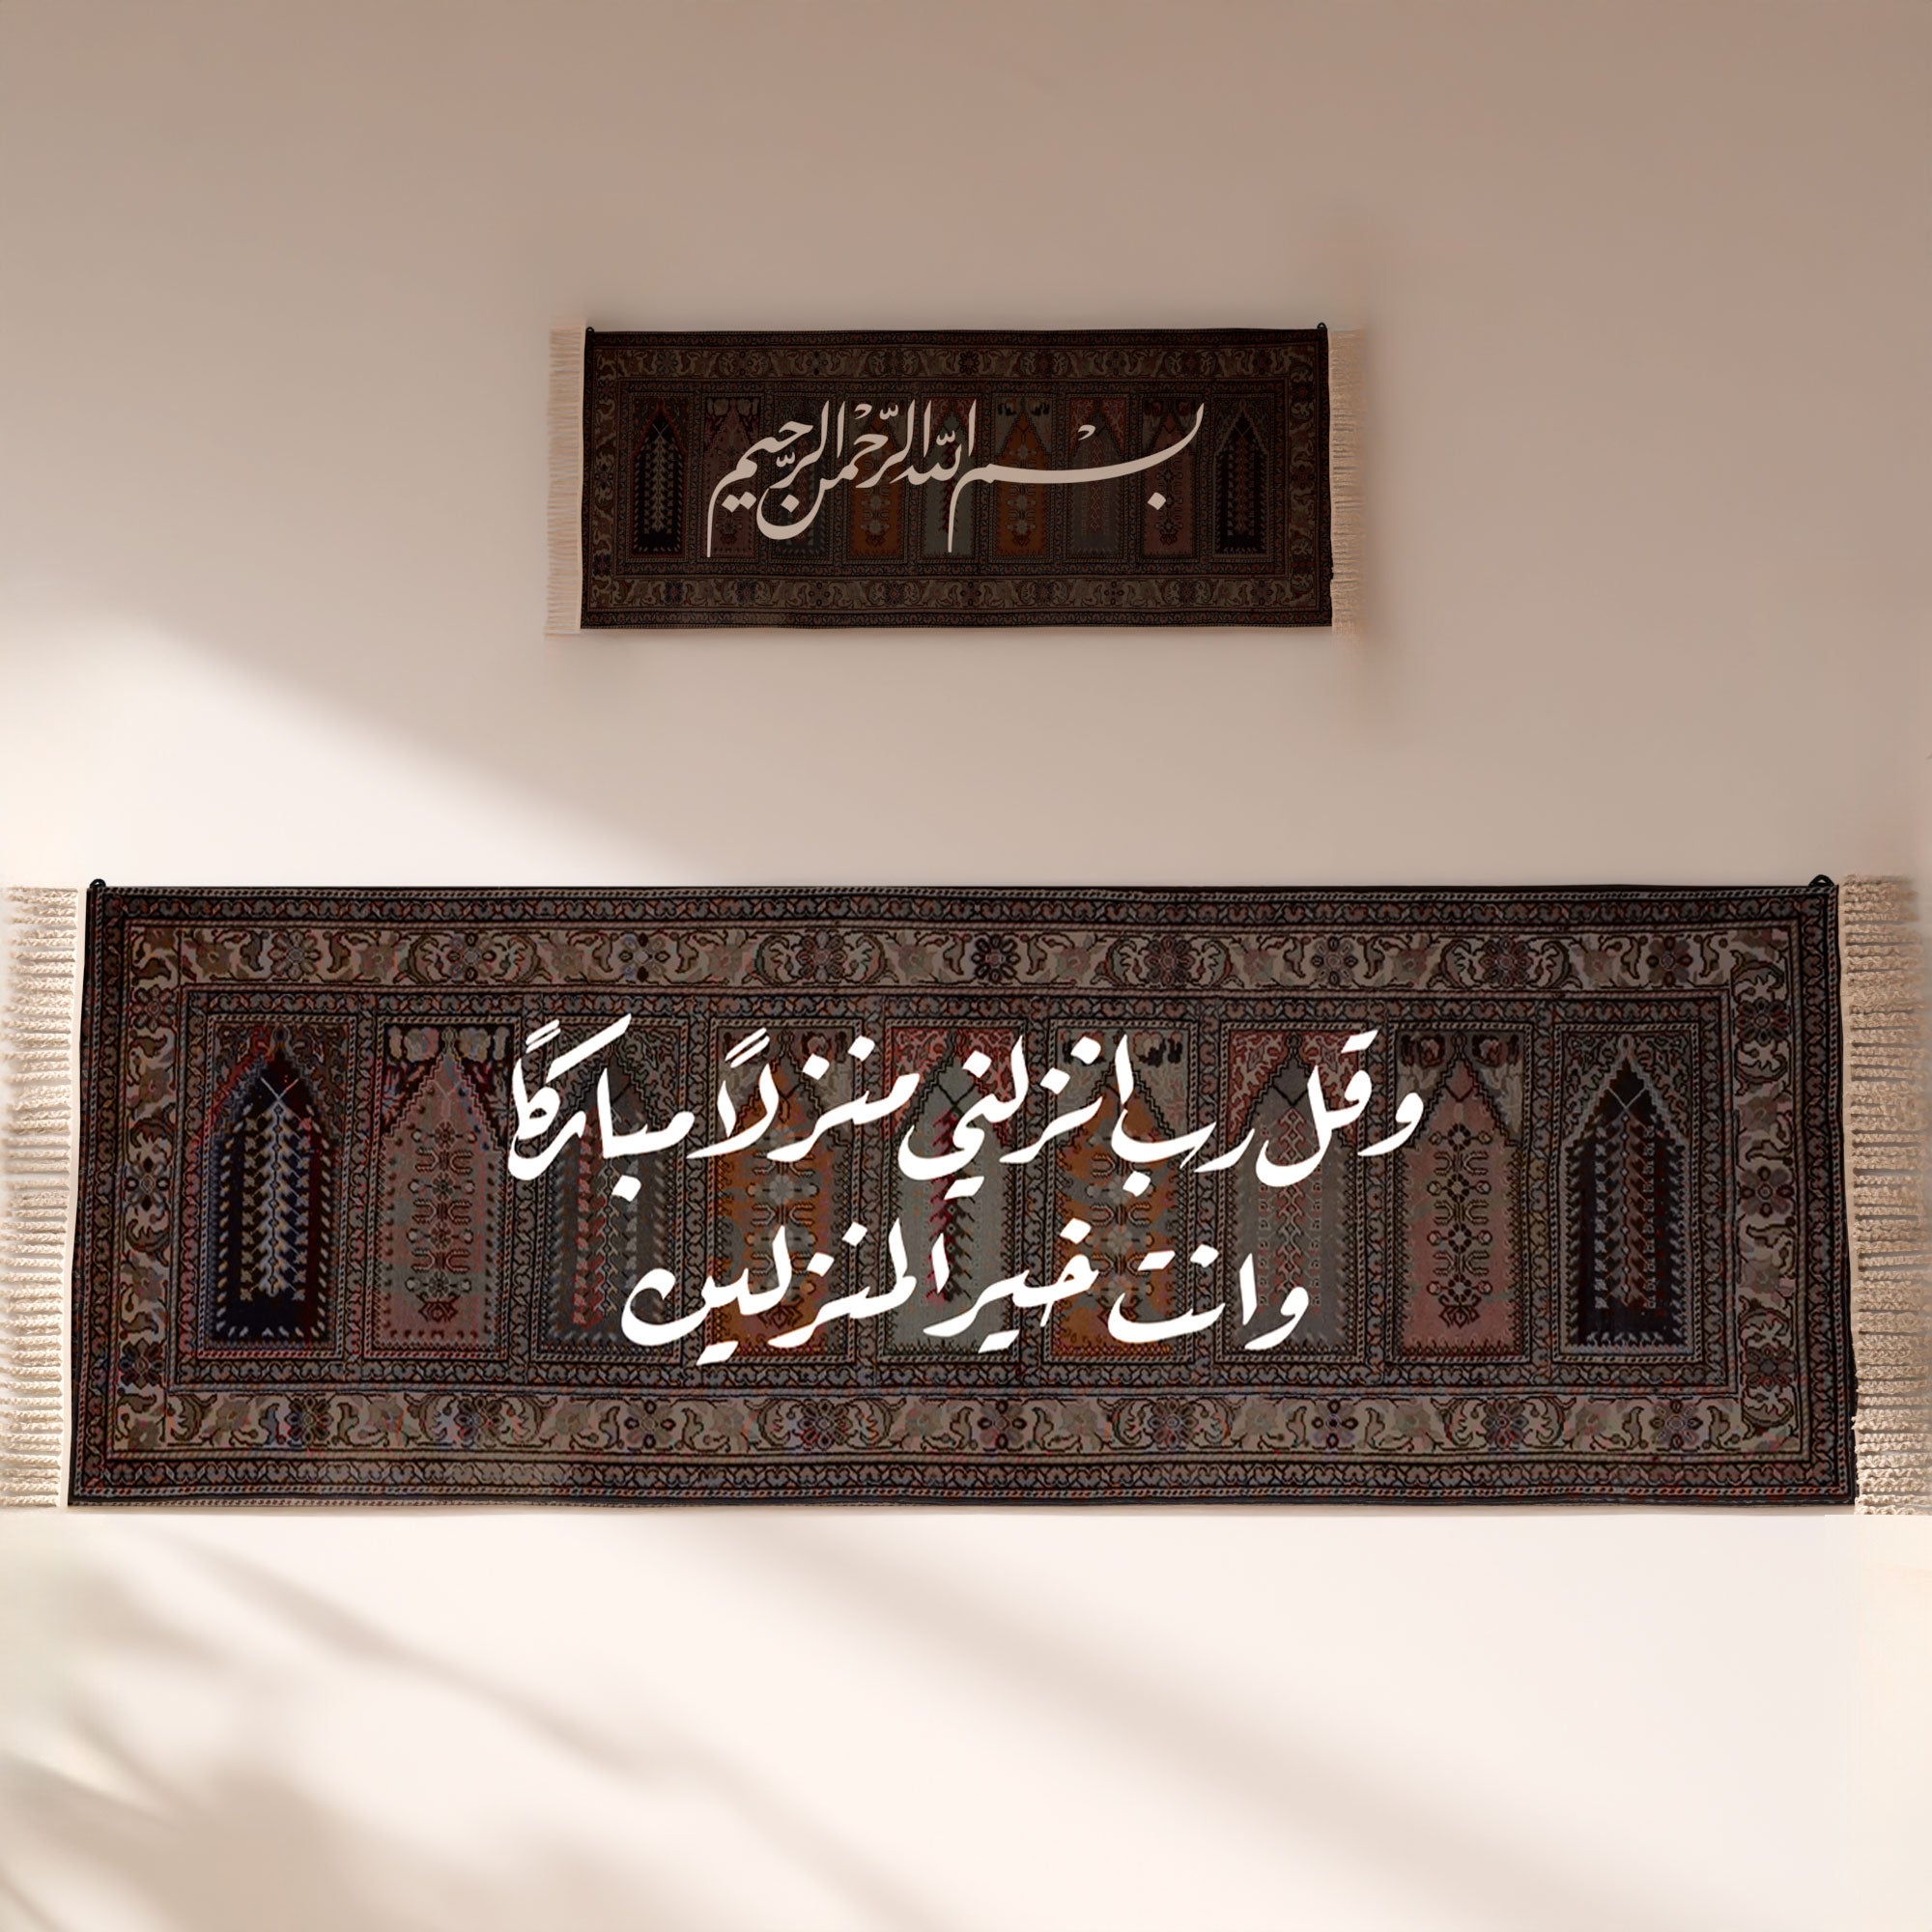 بسم الله الرحمن الرحيم
وقل رب انزلني منزلاً مباركاً
وانت خير المنزلين